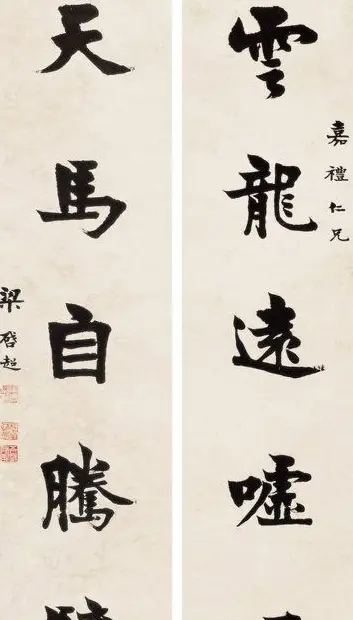 雲龍遠噓
嘉禮仁兄
天馬自騰
梁啓超